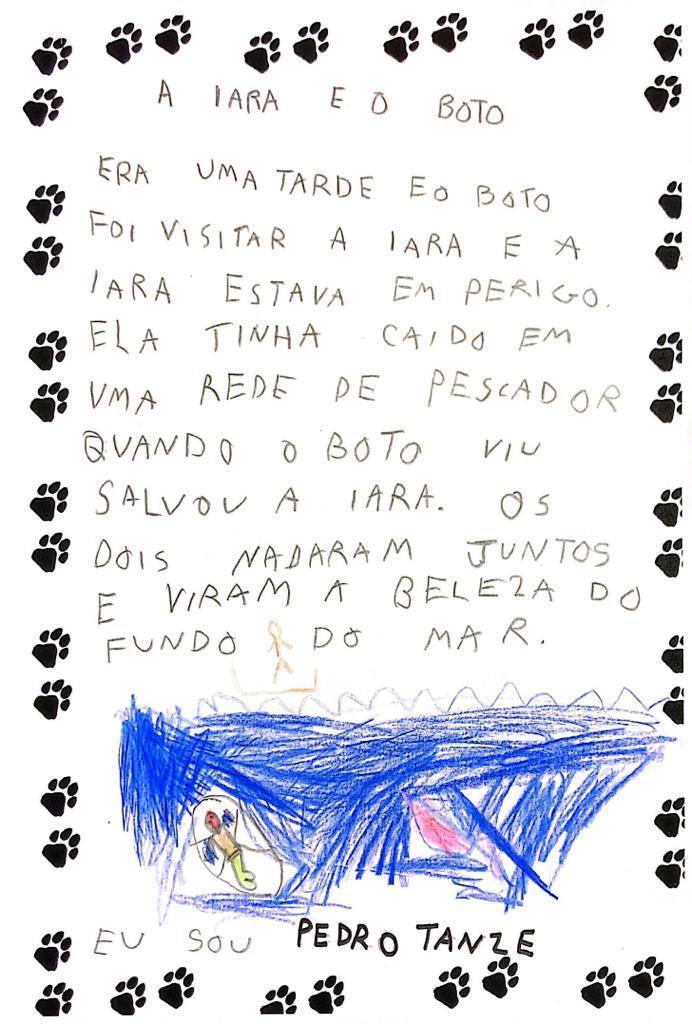 A IARA E O BOTO
ERA UMA TARDE E O BOTO
FOI VISITAR A IARA E A
IARA ESTAVA EM PERIGO.
ELA TINHA CAIDO EM
UMA REDE DE PESCADOR
QUANDO O BOTO VIU
SALVOU A IARA. OS
DOIS NADARAM JUNTOS
E VIRAM A BELEZA DO
FUNDO DO MAR.
EU SOU PEDRO TANZE